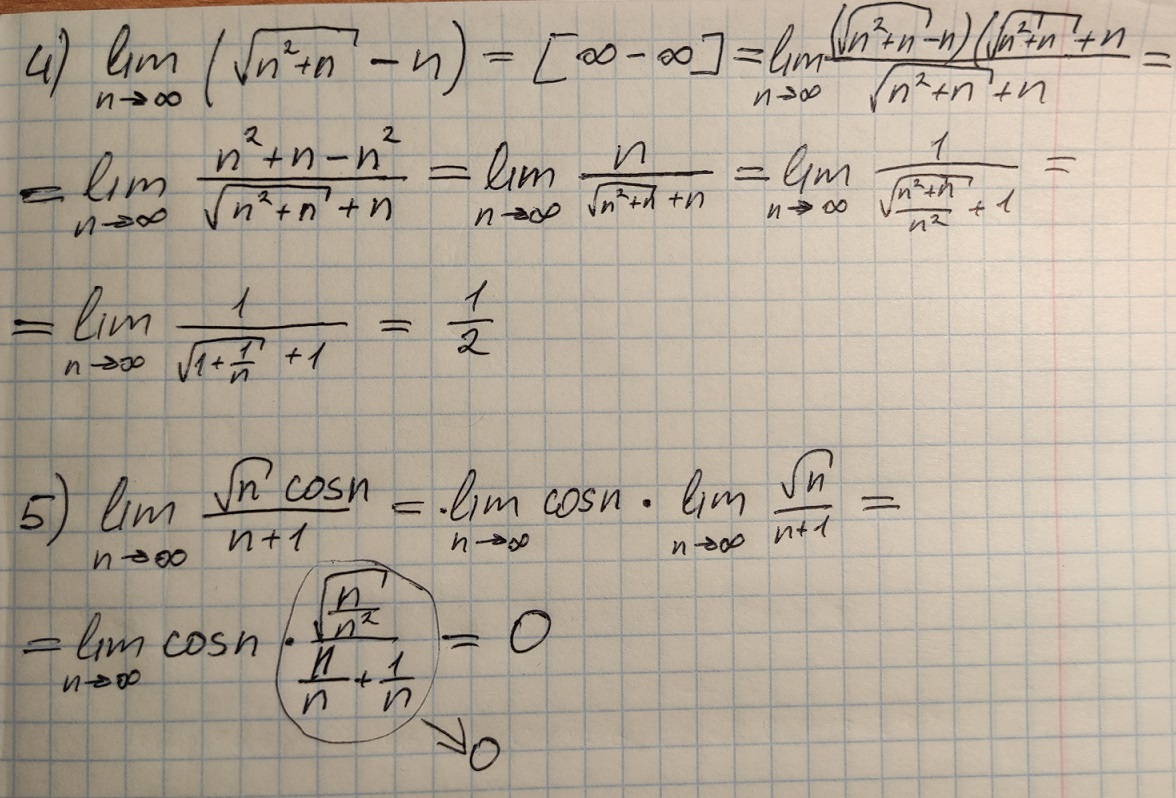 4) lim n→∞ (√(n²+n) - n) = [∞ - ∞] = lim n→∞ (√(n²+n) - n)(√(n²+n) + n / √(n²+n) + n =
= lim n→∞ (n²+n-n²) / (√(n²+n) + n) = lim n→∞ n / (√(n²+n) + n) = lim n→∞ 1 / (√((n²+n)/n²) + 1) =
= lim n→∞ 1 / (√(1+1/n) + 1) = 1/2
5) lim n→∞ (√n cosn) / (n+1) = · lim n→∞ cosn · lim n→∞ √n / (n+1) =
= lim n→∞ cosn · √(n/n²) / (n/n + 1/n) = 0
→ 0